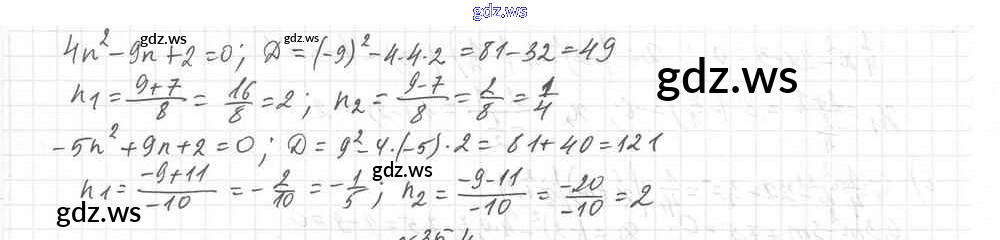 gdz.ws
4n² - 9n + 2 = 0; D = (-9)² - 4·4·2 = 81 - 32 = 49
gdz.ws gdz.ws
gdz.ws
n₁ = (9+7)/8 = 16/8 = 2; n₂ = (9-7)/8 = 2/8 = 1/4
-5n² + 9n + 2 = 0; D = 9² - 4·(-5)·2 = 81 + 40 = 121
gdz.ws
n₁ = (-9+11)/(-10) = -2/10 = -1/5; n₂ = (-9-11)/(-10) = (-20)/(-10) = 2
gdz.ws